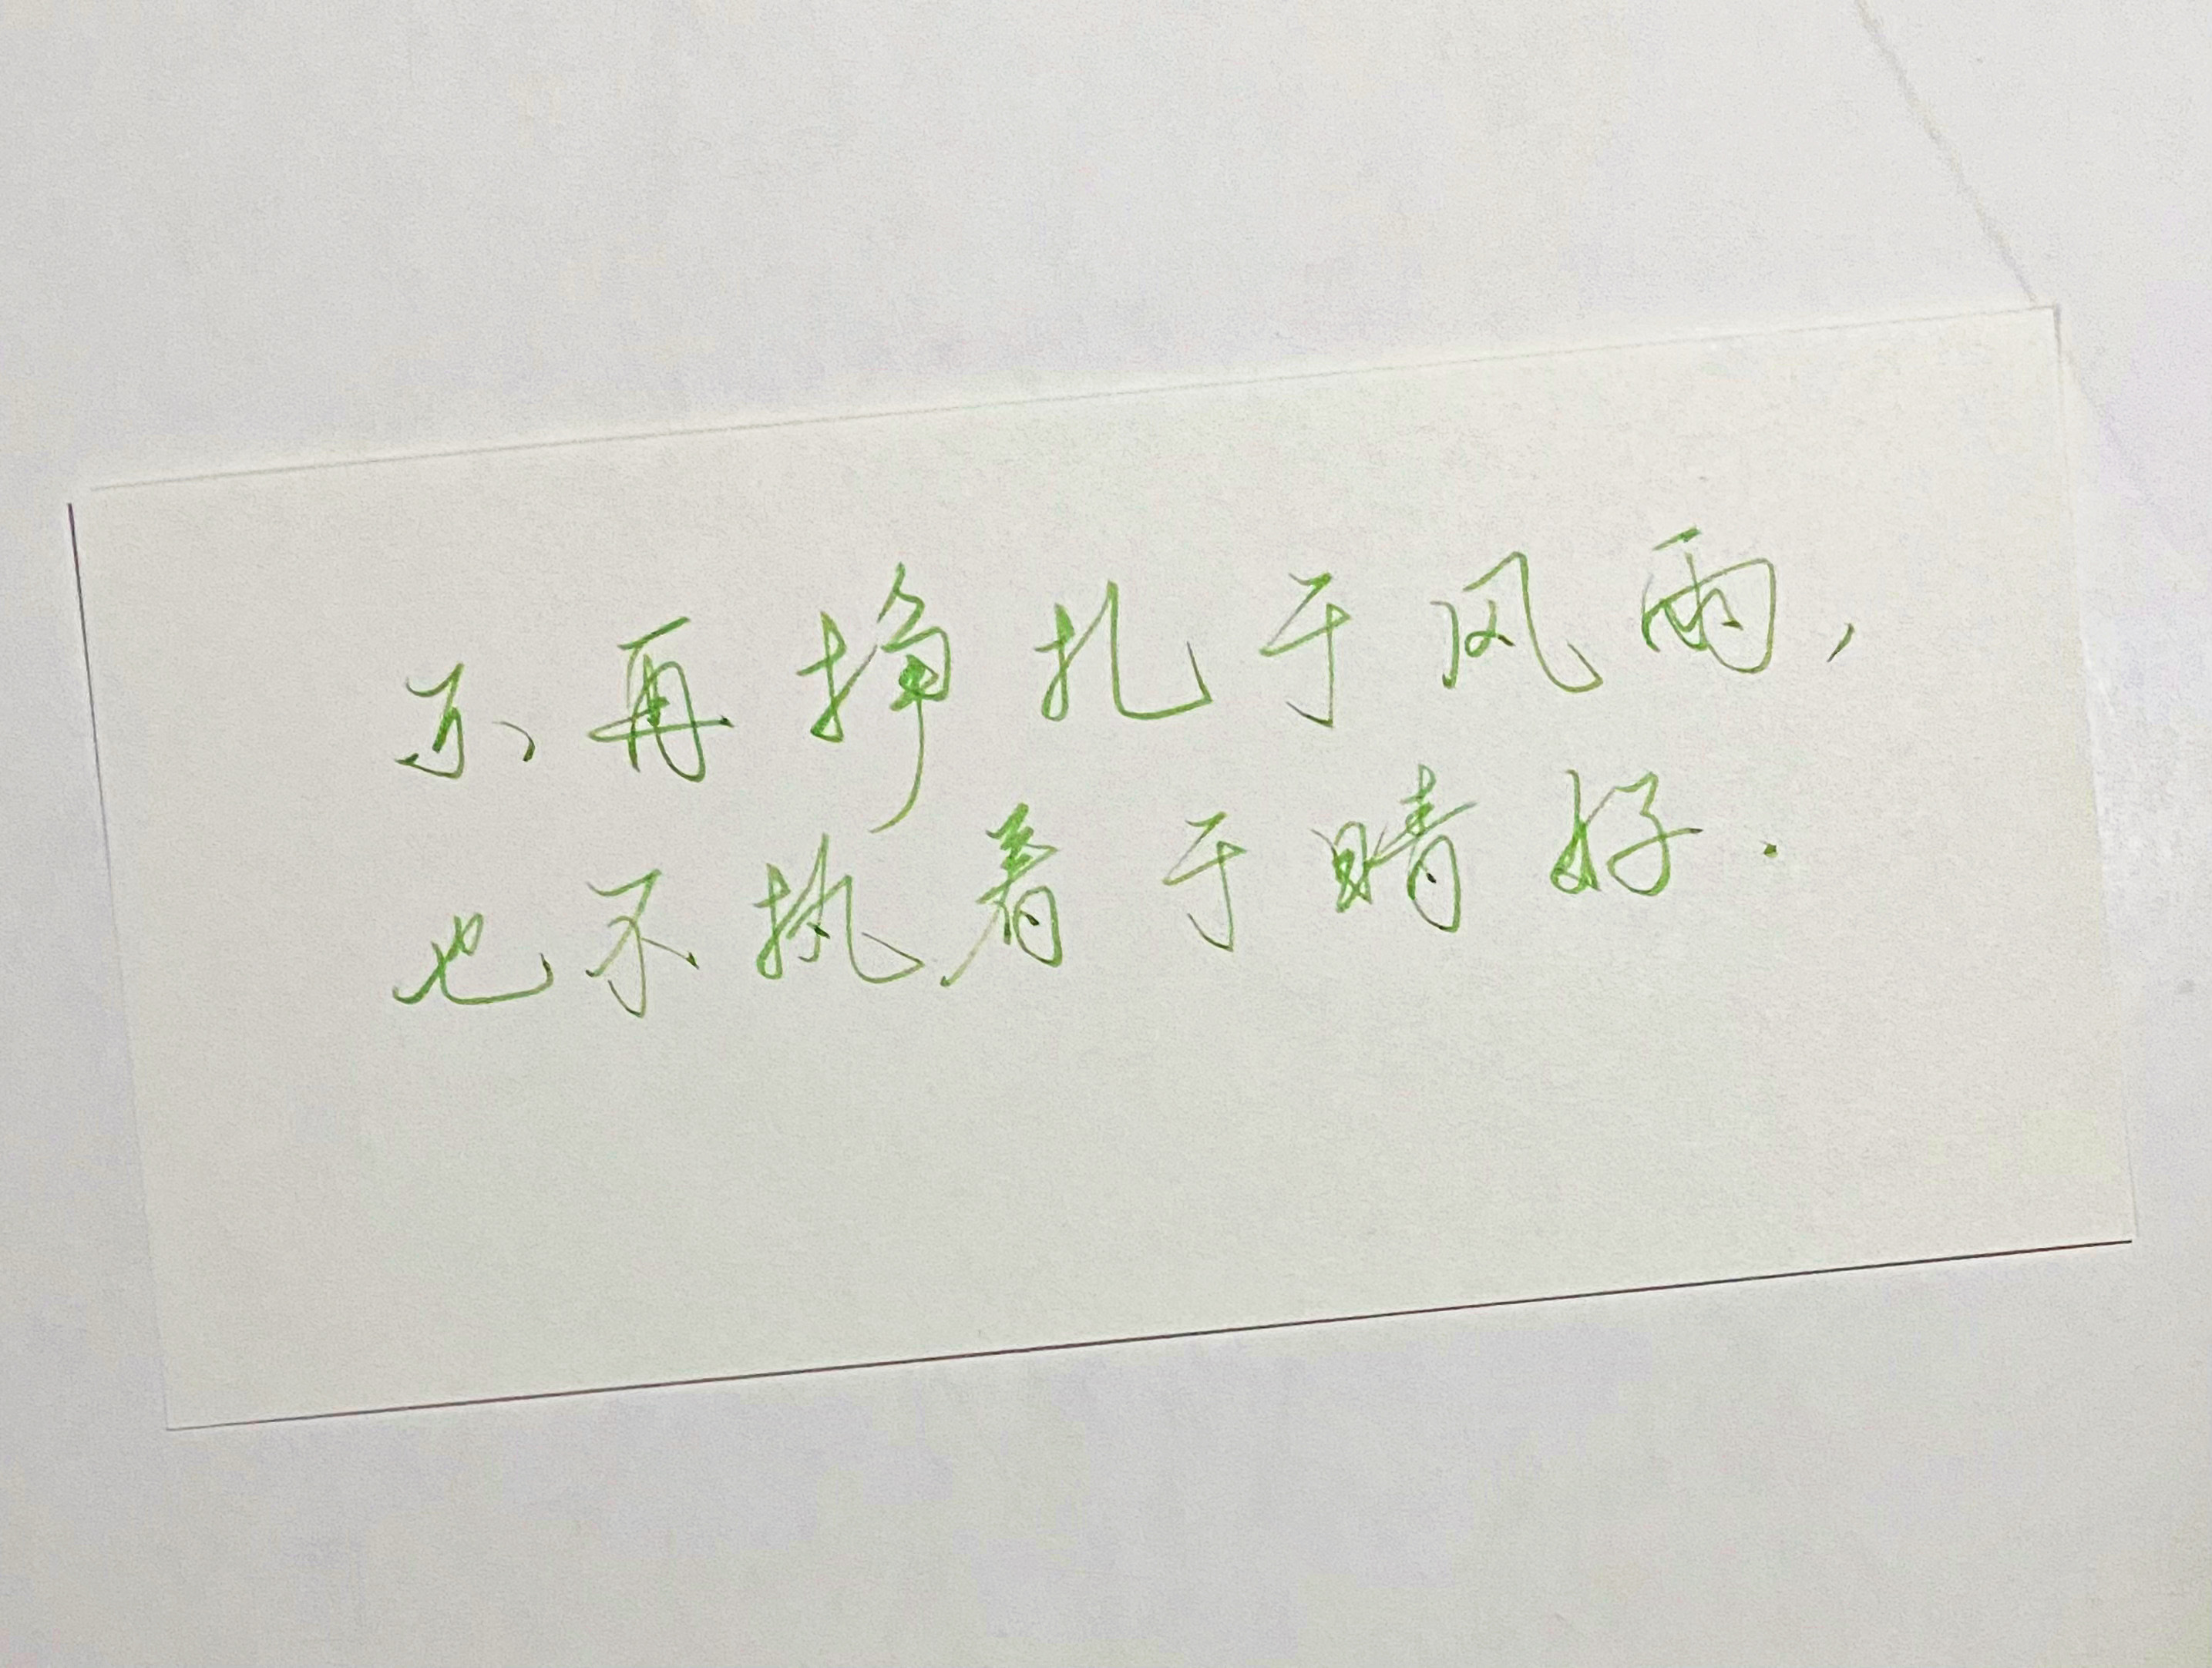 不再挣扎于风雨，
也不执着于晴好.